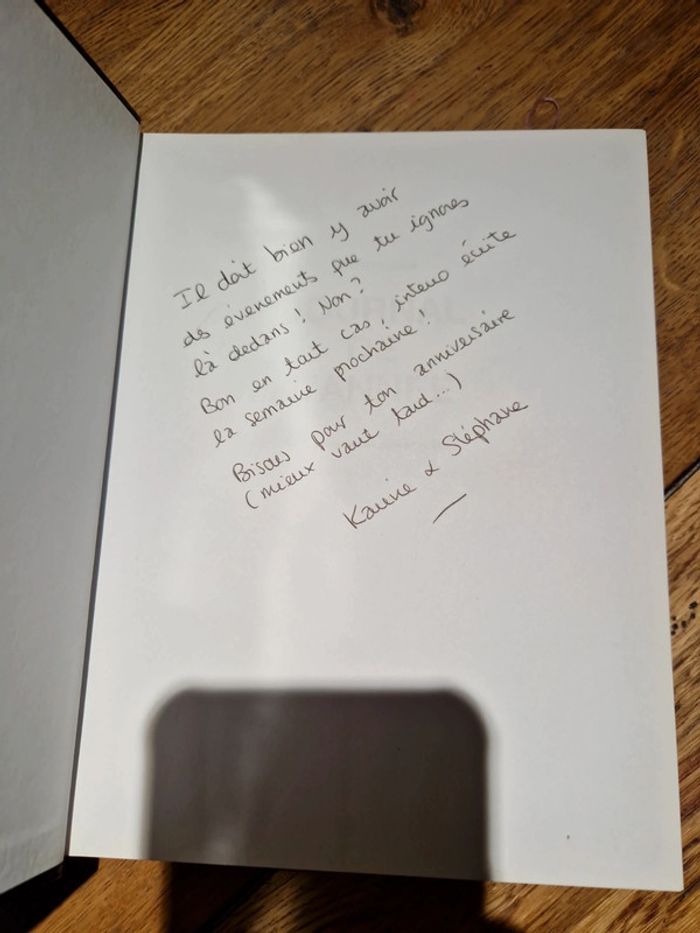 Il doit bien y avoir
des évenements que tu ignores
là dedans ! Non ?
Bon en tout cas, interro écrite
la semaine prochaine !
Bisous pour ton anniversaire
(mieux vaut tard...)
Karine & Stéphane